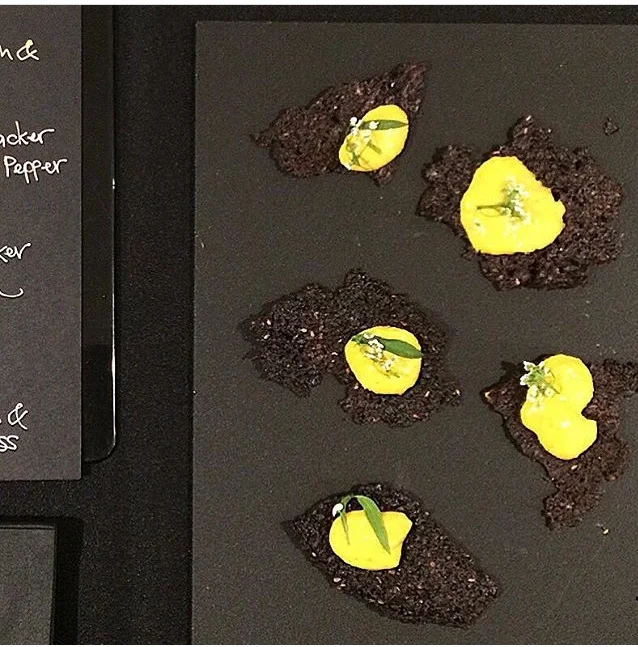 &
acker
Pepper
ker
&
ss